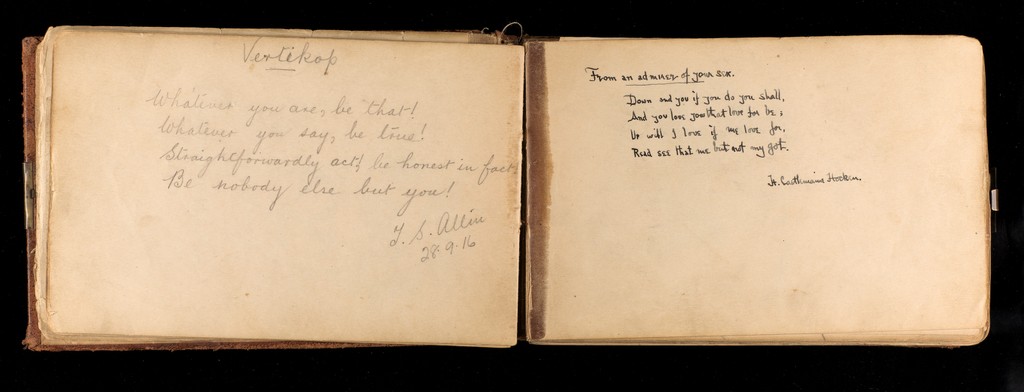 Vertikop
Whatever you are, be that!
Whatever you say, be true!
Straightforwardly act! be honest in fact.
Be nobody else but you!
S. Allin
28-9-16
From an admirer of your sex.
Down and you if you do you shall,
And you love you that love for be;
Up will I love if me love for,
Read see that me but not my got.